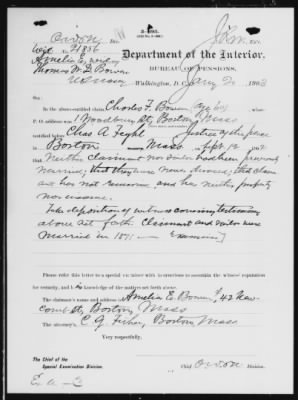 3-085.
Department of the Interior,
BUREAU OF PENSIONS,
Washington, D. C., Jany 2, 1903
No. 21856
Amelia E. wid of
Thomas W. D. Bowen
U.S. Navy
SIR:
In the above-entitled claim Charles F. Bowen (age 60) whose
P. O. address was 1 Woodbury St, Boston, Mass
certified before Chas A. Feyhl Justice of the peace
Boston Mass Sept 12 1902
that Neither Claimant nor Sailor had been previously
married; that they were never divorced; that claimant
has not remarried and has neither property
nor income.
Take deposition of witness covering testimony
above set forth. Claimant and sailor were
married in 1871
Please refer this letter to a special examiner with instructions to ascertain the witness' reputation
for veracity, and his knowledge of the matters set forth above.
The claimant's name and address Amelia E. Bowen, 42 New-
comb St, Boston, Mass
The attorney's, C. G. Fisher, Boston Mass
Very respectfully,
The Chief of the
Special Examination Division.
Chief Division.